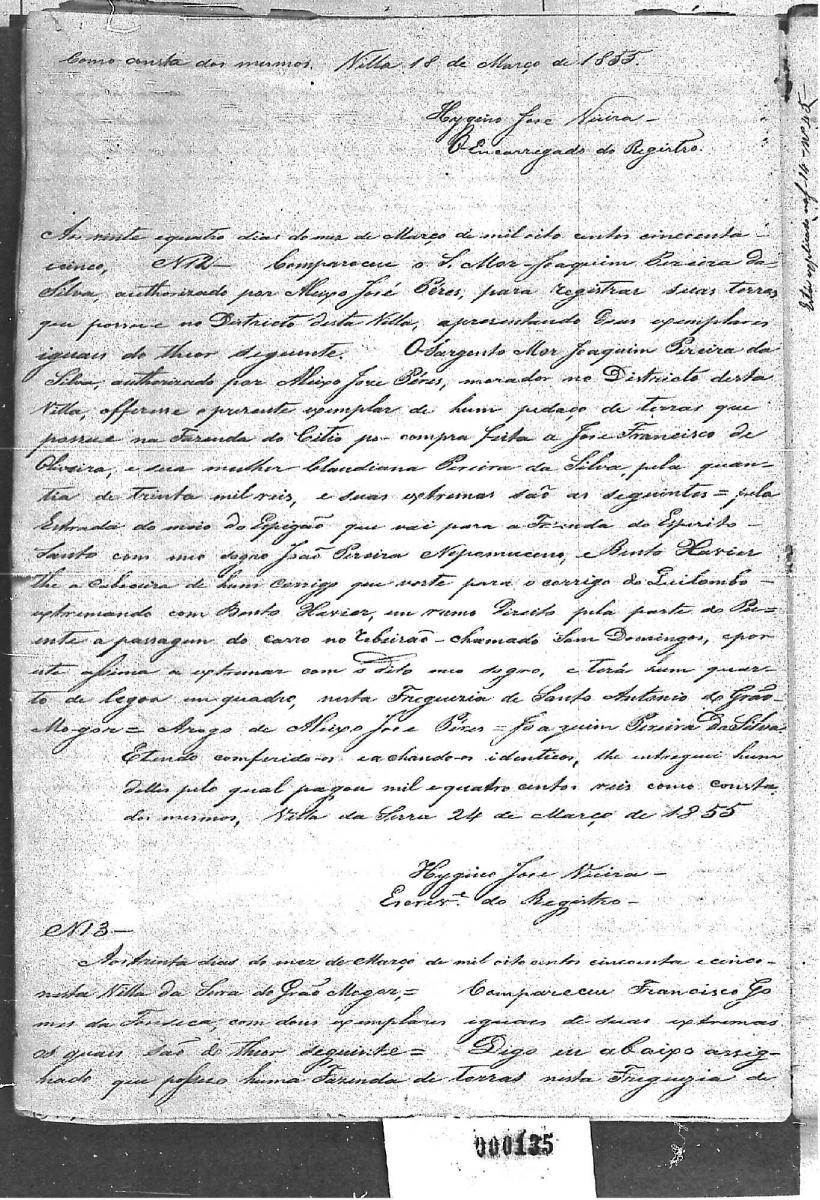 Como consta dos mesmos. Villa 18 de Março de 1855.
Hygino Jose Vieira –
O Encarregado do Registro.
Aos vinte equatro dias do mez de Março de mil oito centos cincoenta –
cinco, N12 – Compareceu o S. Mor Joaquim Pereira da
Silva, authorizado por Aleixo José Péres, para registrar suas terras
que possue no Districto desta Villa, apresentando dous exemplares
iguais do theor seguinte. O Sargento Mor Joaquim Pereira da
Silva, authorizado por Aleixo Jose Péres, morador no Districto desta
Villa, offerece o presente exemplar de hum pedaço de terras que
possue na Fazenda do Citio por compra feita a Jose Francisco de
Oliveira, e sua mulher Claudiana Pereira da Silva, pela quan-
tia de trinta mil reis, e suas extremas são as seguintes = pela
Estrada do meio do Espigão que vai para a Fazenda do Esperito –
Santo com meo sogro João Pereira Nepamuceno, e Bento Xavier
the a cabeceira de hum corrigo que verte para o corrigo do Quilombo –
extremando com Bento Xavier, em rumo Direito pela parte do Po-
ente a passagem do carro no ribeirão – chamado Sam Domingos, epor
este assima a extremar com o dito meo sogro, e terá hum quar-
to de legoa em quadro, nesta Freguezia de Santo Antonio do Grão
Mogor = Arogo de Aleixo Jose Péres = Joaquim Pereira Da Silva.
Etendo comferido-os e achando-os identicos, lhe entreguei hum
delles pelo qual pagou mil equatro centos reis como consta
dos mesmos, Villa da Serra 24 de Março de 1855
Hygino Jose Vieira –
Escrivᵉ. do Registro –
N13 –
Aos trinta dias do mez de Março de mil oito centos cincoenta e cinco
nesta Villa da Serra do Grão Mogor, = Compareceu Francisco Go
mes da Fonseca, com dous exemplares iguais de suas extremas
as quais são do theor seguinte = Digo eu abaixo assig-
nado que possuo huma Fazenda de terras nesta Freguezia de
000135